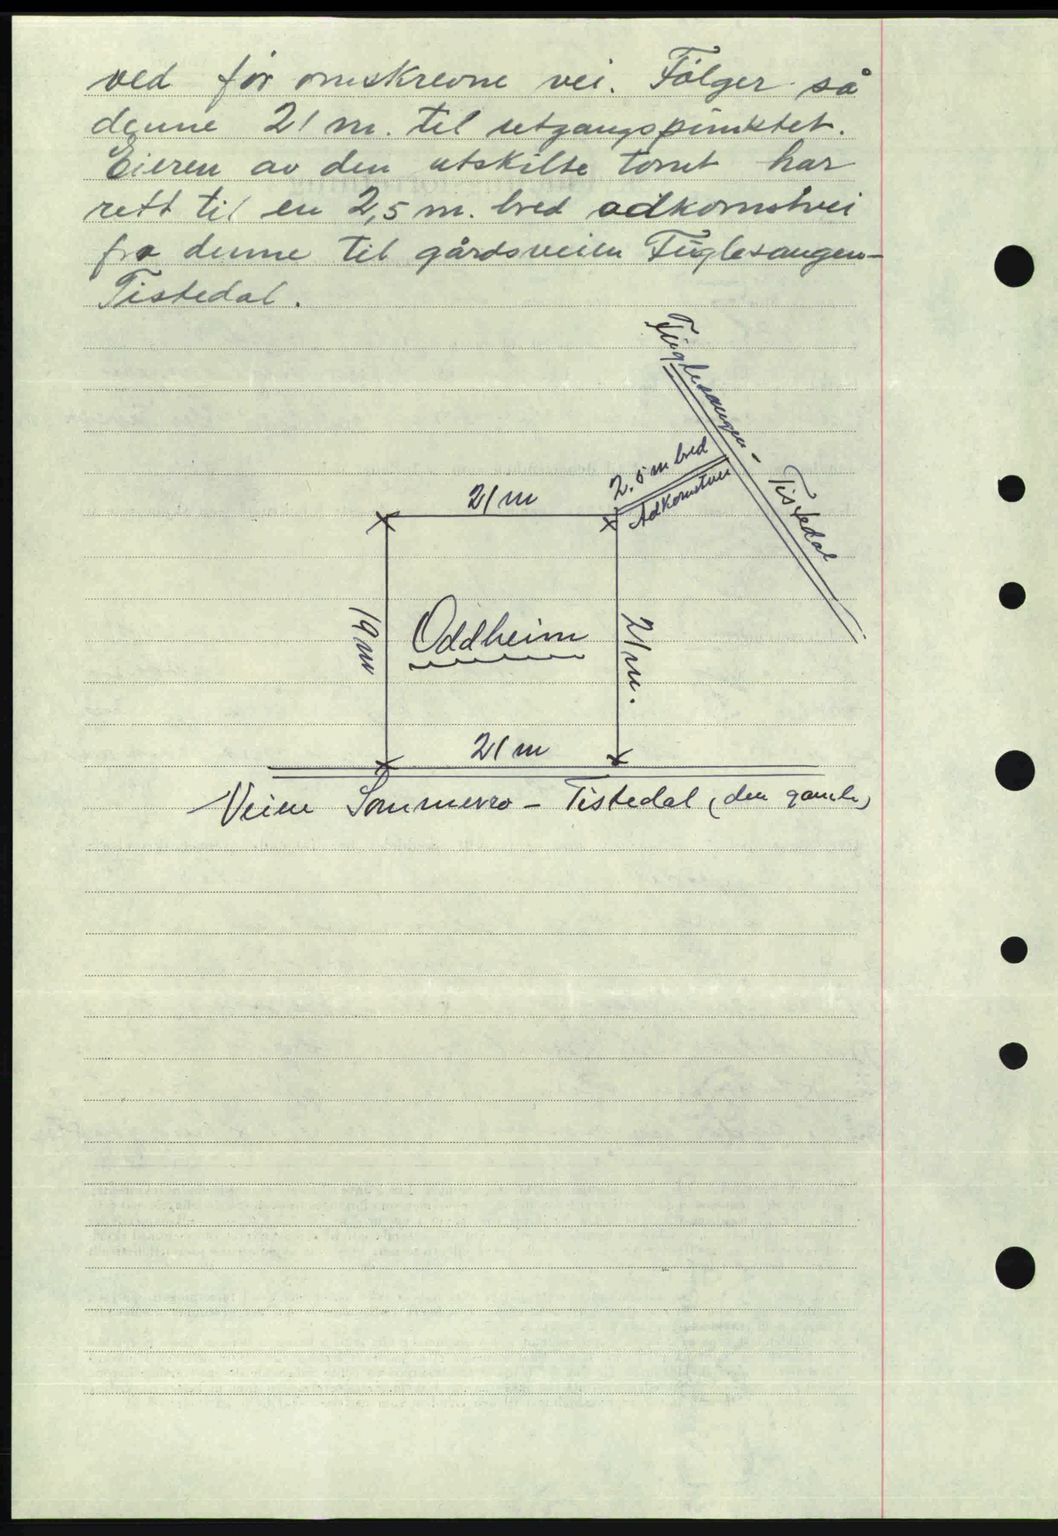 ved før omskrevne vei. Følger så
denne 21 m. til utgangspunktet.
Eieren av den utskilte tomt har
rett til en 2,5 m. bred adkomstvei
fra denne til gårdsveien Fuglesangen-
Tistedal.
Fuglesangen - Tistedal
2.5 m bred
Adkomstvei
21 m
19 m
Oddheim
21 m.
21 m
Veien Sommerro - Tistedal (den gamle)